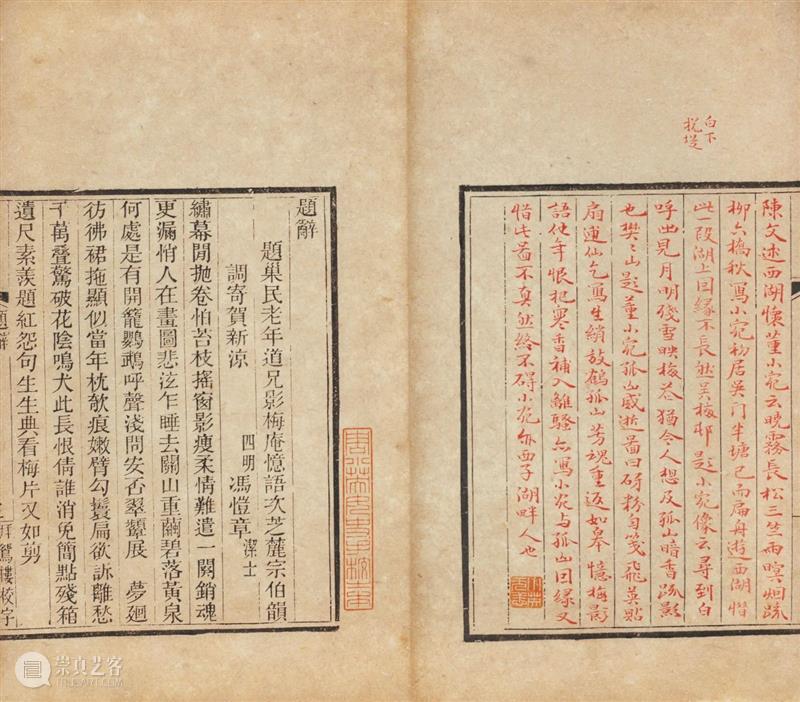 白下
脫堤
陳文述西湖懷董小宛云曉霧長松三竺雨暝烟疏
柳六橋秋寫小宛初居吳門半塘已而扁舟遊西湖惜
此一段湖上因緣不長然吳梅邨題小宛像云尋到白
呼出見月明殘雪映梅花猶令人想及孤山暗香疏影
也樊樊山題董小宛孤山感逝圖曰研粉勻箋飛英貼
扇逋仙乞寫生綃放鶴孤山芳魂重返如皋憶梅影
語使年恨杞寒香補入離騷亦寫小宛与孤山因緣又
惜此圖不真然終不礙小宛為西子湖畔人也
題辭
題巢民老年道兄影梅庵憶語次芝麓宗伯韻
調寄賀新涼
四明 馮愷章 潔士
繡幕閒拋卷怕苔枝搖窗影瘦柔情難遣一闋銷魂
更漏悄人在畫圖悲泫乍睡去關山重繭碧落黃泉
何處是有開籠鸚鵡呼聲淺問安否翠顰展 夢迴
彷彿裙拖顯似當年枕欹痕嫩臂勾鬟扁欲訴離愁
千萬叠驚破花陰鳴犬此長恨倩誰消免簡點殘箱
遺尺素羨題紅怨句生生典看梅片又如剪
題辭
拜鴛樓校字
崇真艺客